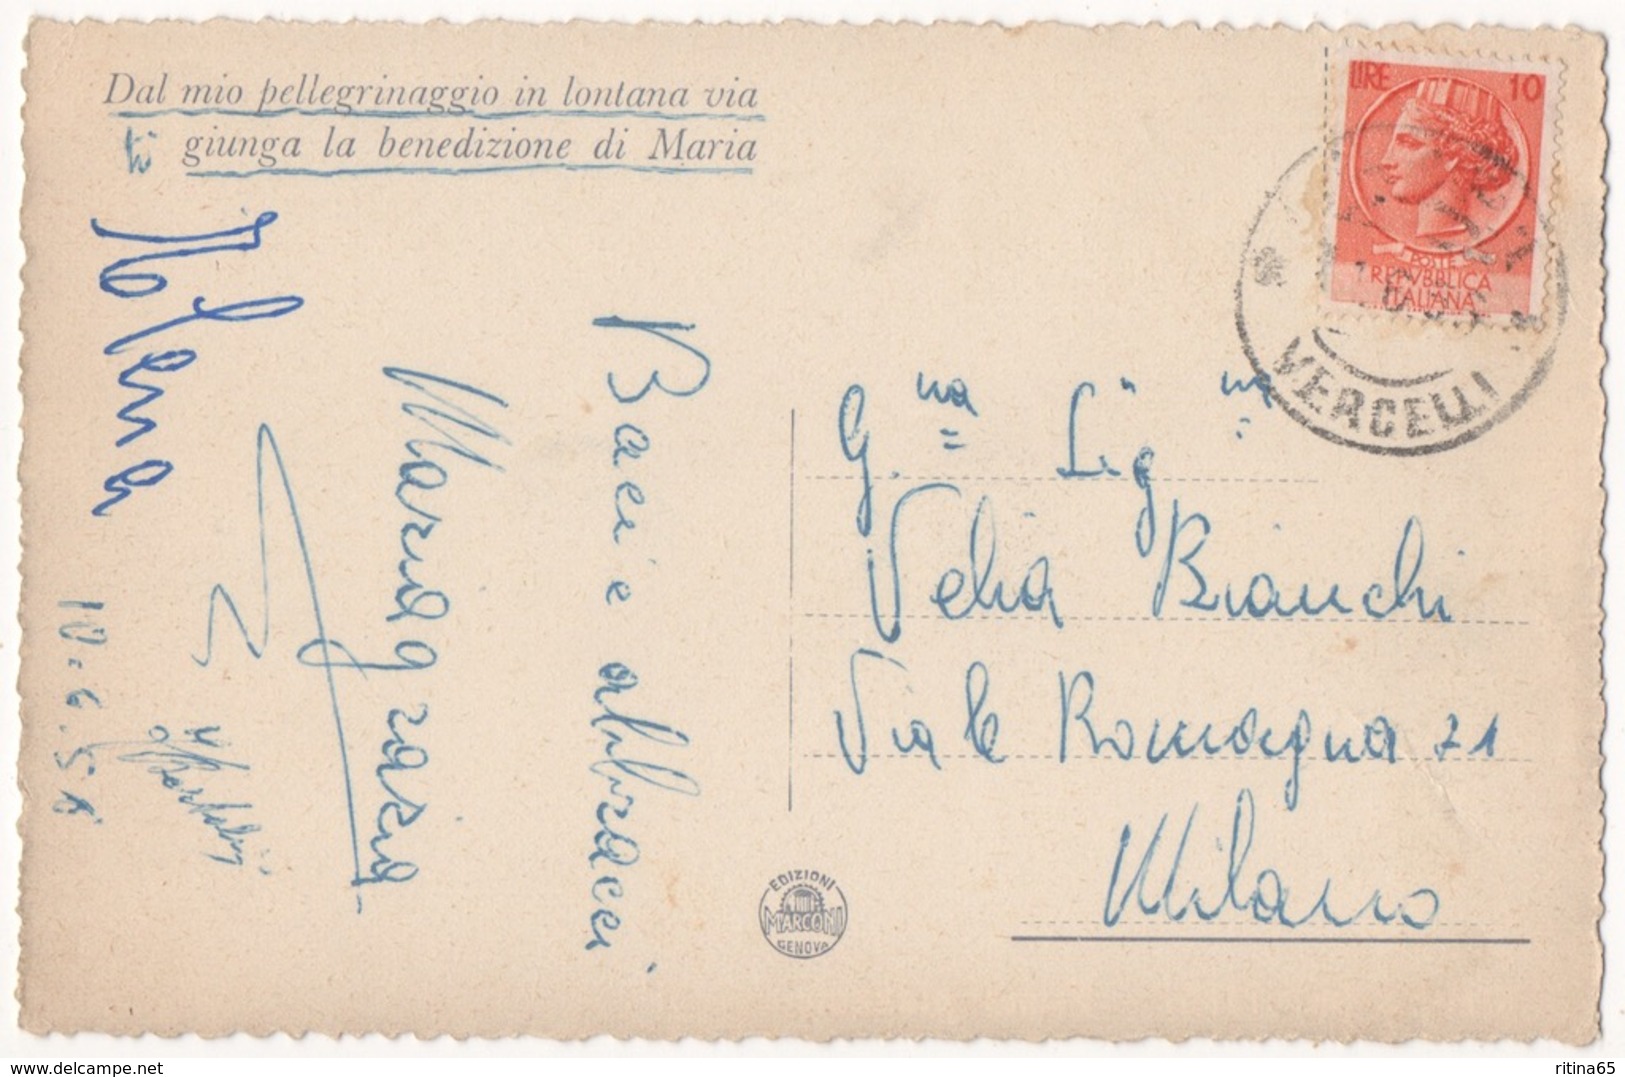 Dal mio pellegrinaggio in lontana via
ti giunga la benedizione di Maria
LIRE 10
POSTE
REPVBBLICA
ITALIANA
VERCELLI
G.na Sig.na
Velia Bianchi
Viale Romagna 71
Milano
Baci e abbracci
Mariagrazia
10-6-58
EDIZIONI
MARCONI
GENOVA
delcampe.net
ritina65